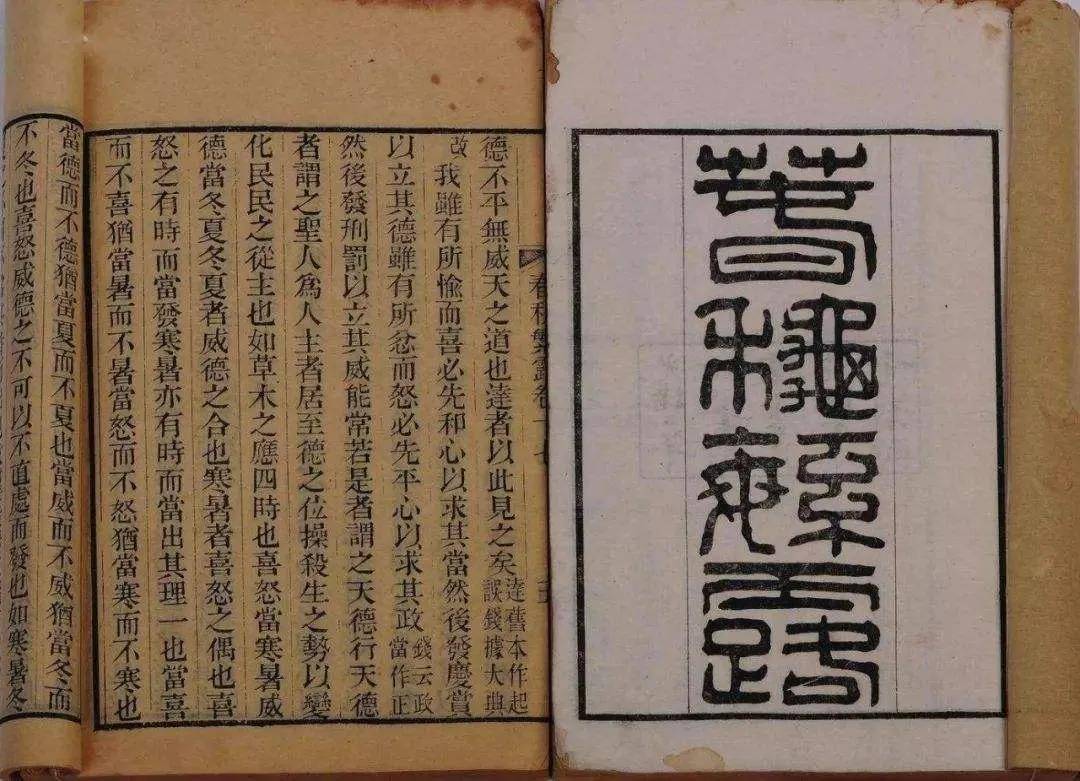 春秋繁露卷十七
德不平無威天之道也達者以此見之矣達舊本作起誤錢據大典
改我雖有所愉而喜必先和心以求其當然後發慶賞
以立其德雖有所忿而怒必先平心以求其政錢云政當作正
然後發刑罰以立其威能常若是者謂之天德行天德
者謂之聖人為人主者居至德之位操殺生之勢以變
化民民之從主也如草木之應四時也喜怒當寒暑威
德當冬夏冬夏者威德之合也寒暑者喜怒之偶也喜
怒之有時而當發寒暑亦有時而當出其理一也當喜
而不喜猶當暑而不暑當怒而不怒猶當寒而不寒也
當德而不德猶當夏而不夏也當威而不威猶當冬而
不冬也喜怒威德之不可以不直處而發也如寒暑冬